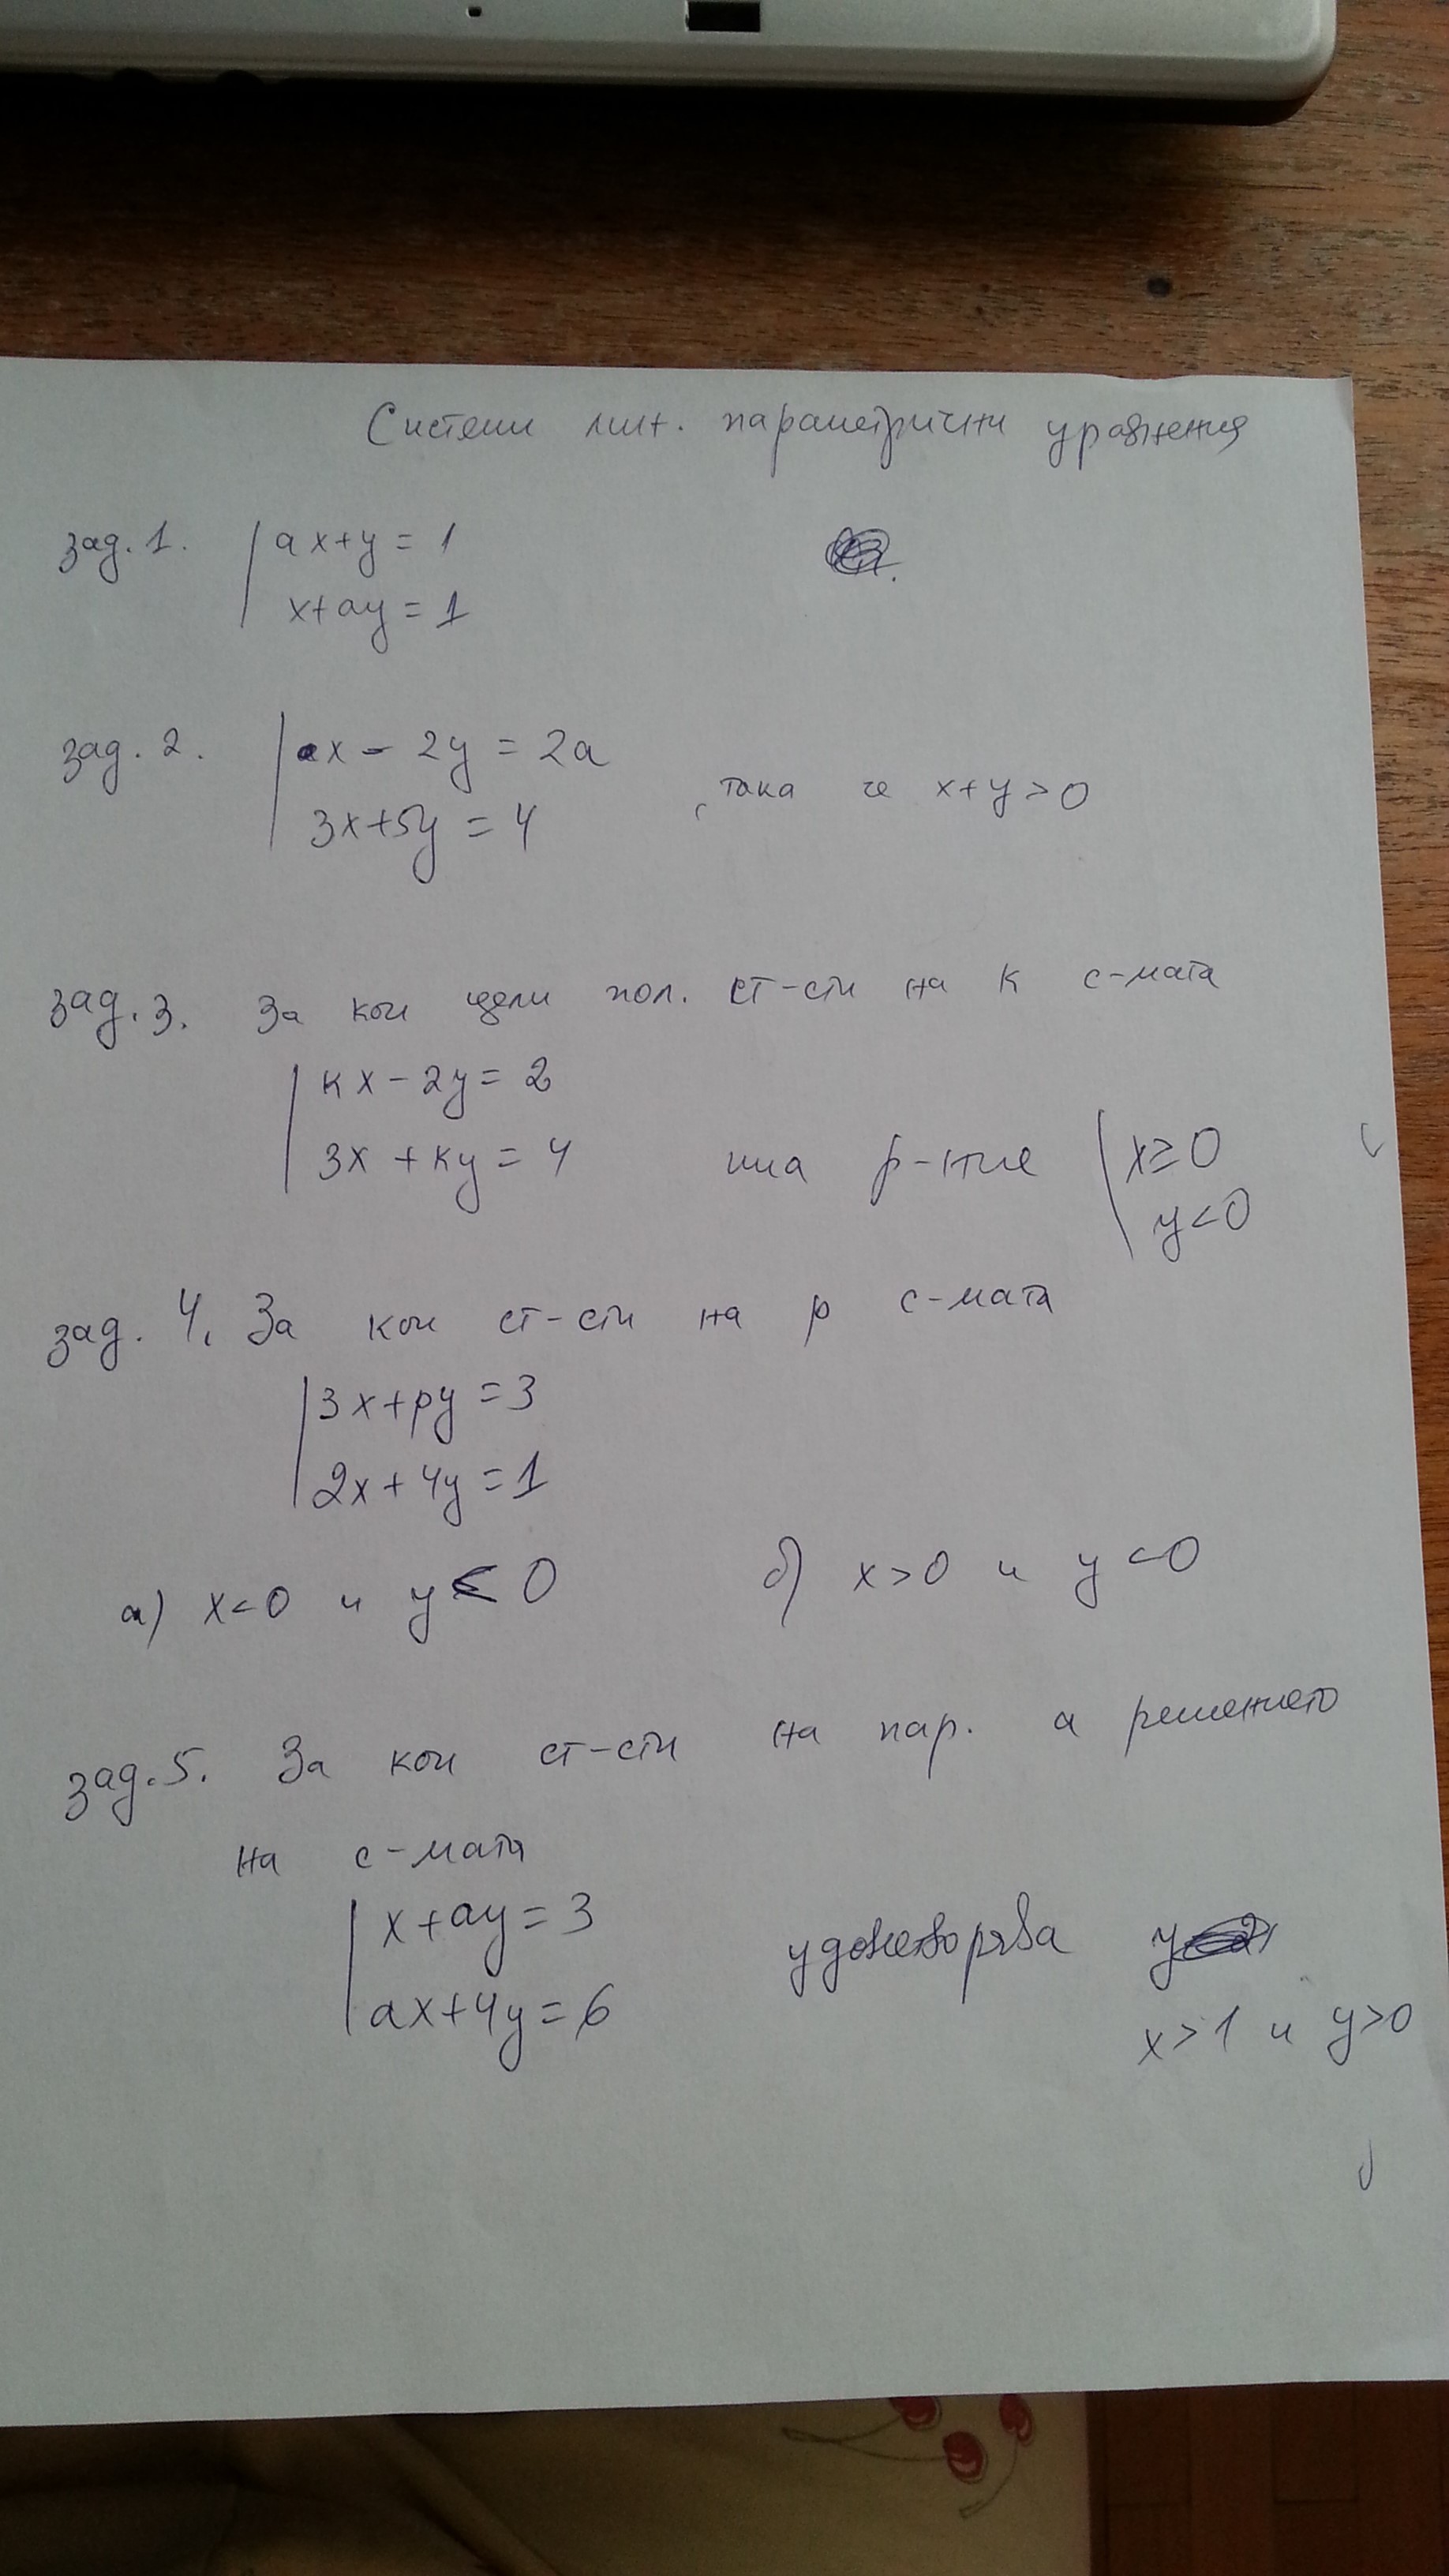 Системи лин. параметрични уравнения
зад. 1. ax+y = 1
x+ay = 1
зад. 2. ax - 2y = 2a
3x+5y = 4 , така че x+y>0
зад. 3. За кои цели пол. ст-сти на к с-мата
кx - 2y = 2
3x + кy = 4 има р-ние x≥0
y<0
зад. 4. За кои ст-сти на p с-мата
3x+py = 3
2x+4y = 1
а) x<0 и y<0 б) x>0 и y<0
зад. 5. За кои ст-сти на пар. a решението
на с-мата
x+ay = 3 удовлетворява
ax+4y = 6 x>1 и y>0